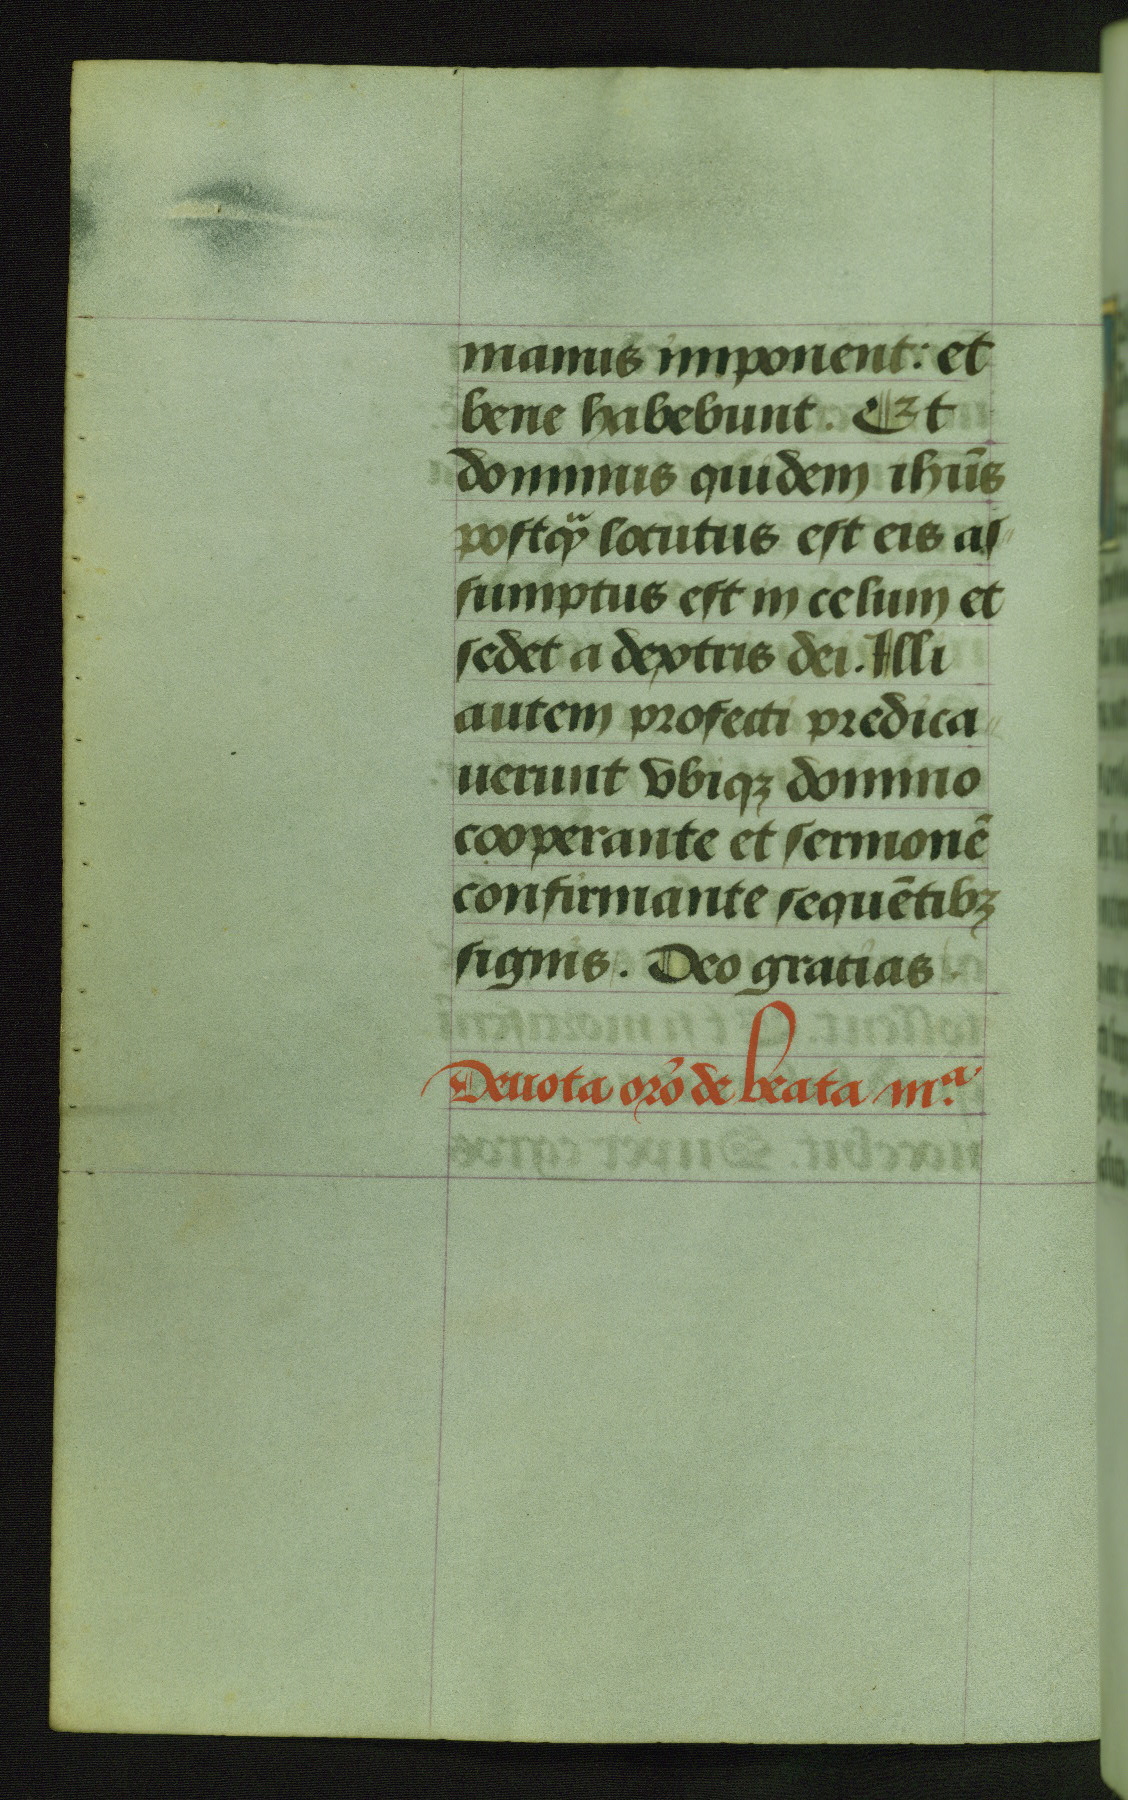 manus imponent: et
bene habebunt. Et
dominus quidem ihūs
postqͣ locutus est eis as
sumptus est in celum et
sedet a dextris dei. Illi
autem profecti predica
uerunt vbiqꝫ domino
cooperante et sermonē
confirmante sequētibꝫ
signis. Deo gratias
Deuota orō de beata mͣ.